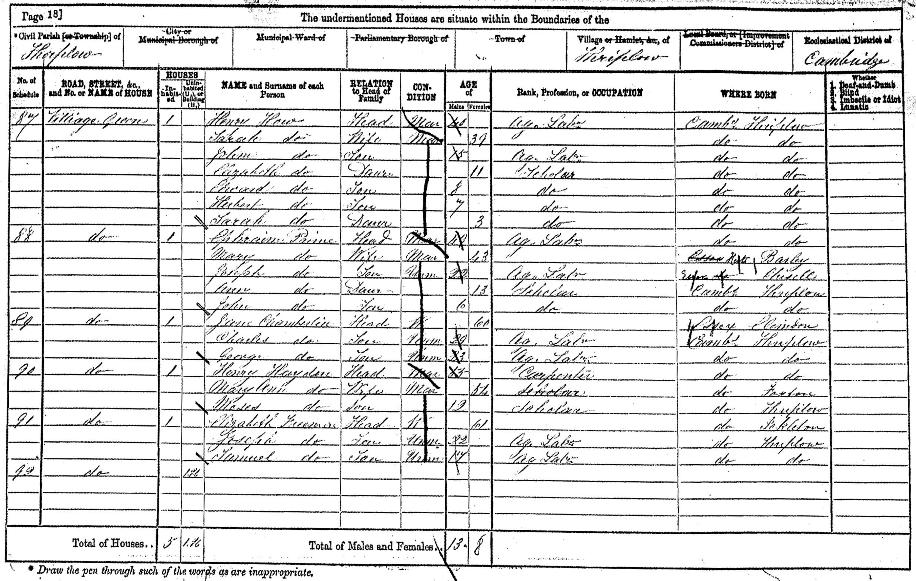 Page 18]
The undermentioned Houses are situate within the Boundaries of the
*Civil Parish [or Township] of
City or Municipal Borough of
Municipal Ward of
Parliamentary Borough of
Town of
Village or Hamlet, &c., of
Local Board, or [Improvement Commissioners District] of
Ecclesiastical District of
Thriplow
Thriplow
Cambridge
No. of Schedule
ROAD, STREET, &c., and No. or NAME of HOUSE
HOUSES
Inhabited
Uninhabited (U.), or Building (B.)
NAME and Surname of each Person
RELATION to Head of Family
CONDITION
AGE of
Males
Females
Rank, Profession, or OCCUPATION
WHERE BORN
Whether
1. Deaf-and-Dumb
2. Blind
3. Imbecile or Idiot
4. Lunatic
87 Village Green 1 Henry How Head Mar 40 Ag. Lab Camb Thriplow
Sarah do Wife Mar 39 do do
John do Son 15 Ag. Lab do do
Elizabeth do Daur 11 Scholar do do
Edward do Son 8 do do do
Herbert do Son 7 do do do
Sarah do Daur 3 do do do
88 do 1 Ephraim Prime Head Mar Ag. Lab do do
Mary do Wife Mar 43 Barley
Joseph do Son Unm 22 Ag. Lab
Ann do Daur 13 Scholar Camb Thriplow
John do Son 6 do do do
89 do 1 Jane Chamberlin Head W 60
Charles do Son Unm 29 Ag. Lab Camb Thriplow
George do Son Unm 23 Ag. Lab do do
90 do 1 Henry Haydon Head Mar Carpenter do do
Mary Ann do Wife Mar do Foxton
Moses do Son 12 Scholar do Thriplow
91 do 1 Elizabeth Freeman Head W 61 do
Joseph do Son Unm 22 Ag. Lab do Thriplow
Samuel do Son Unm 17 Ag Lab do do
92 do
Total of Houses.. 5
Total of Males and Females.. 13 8
* Draw the pen through such of the words as are inappropriate.